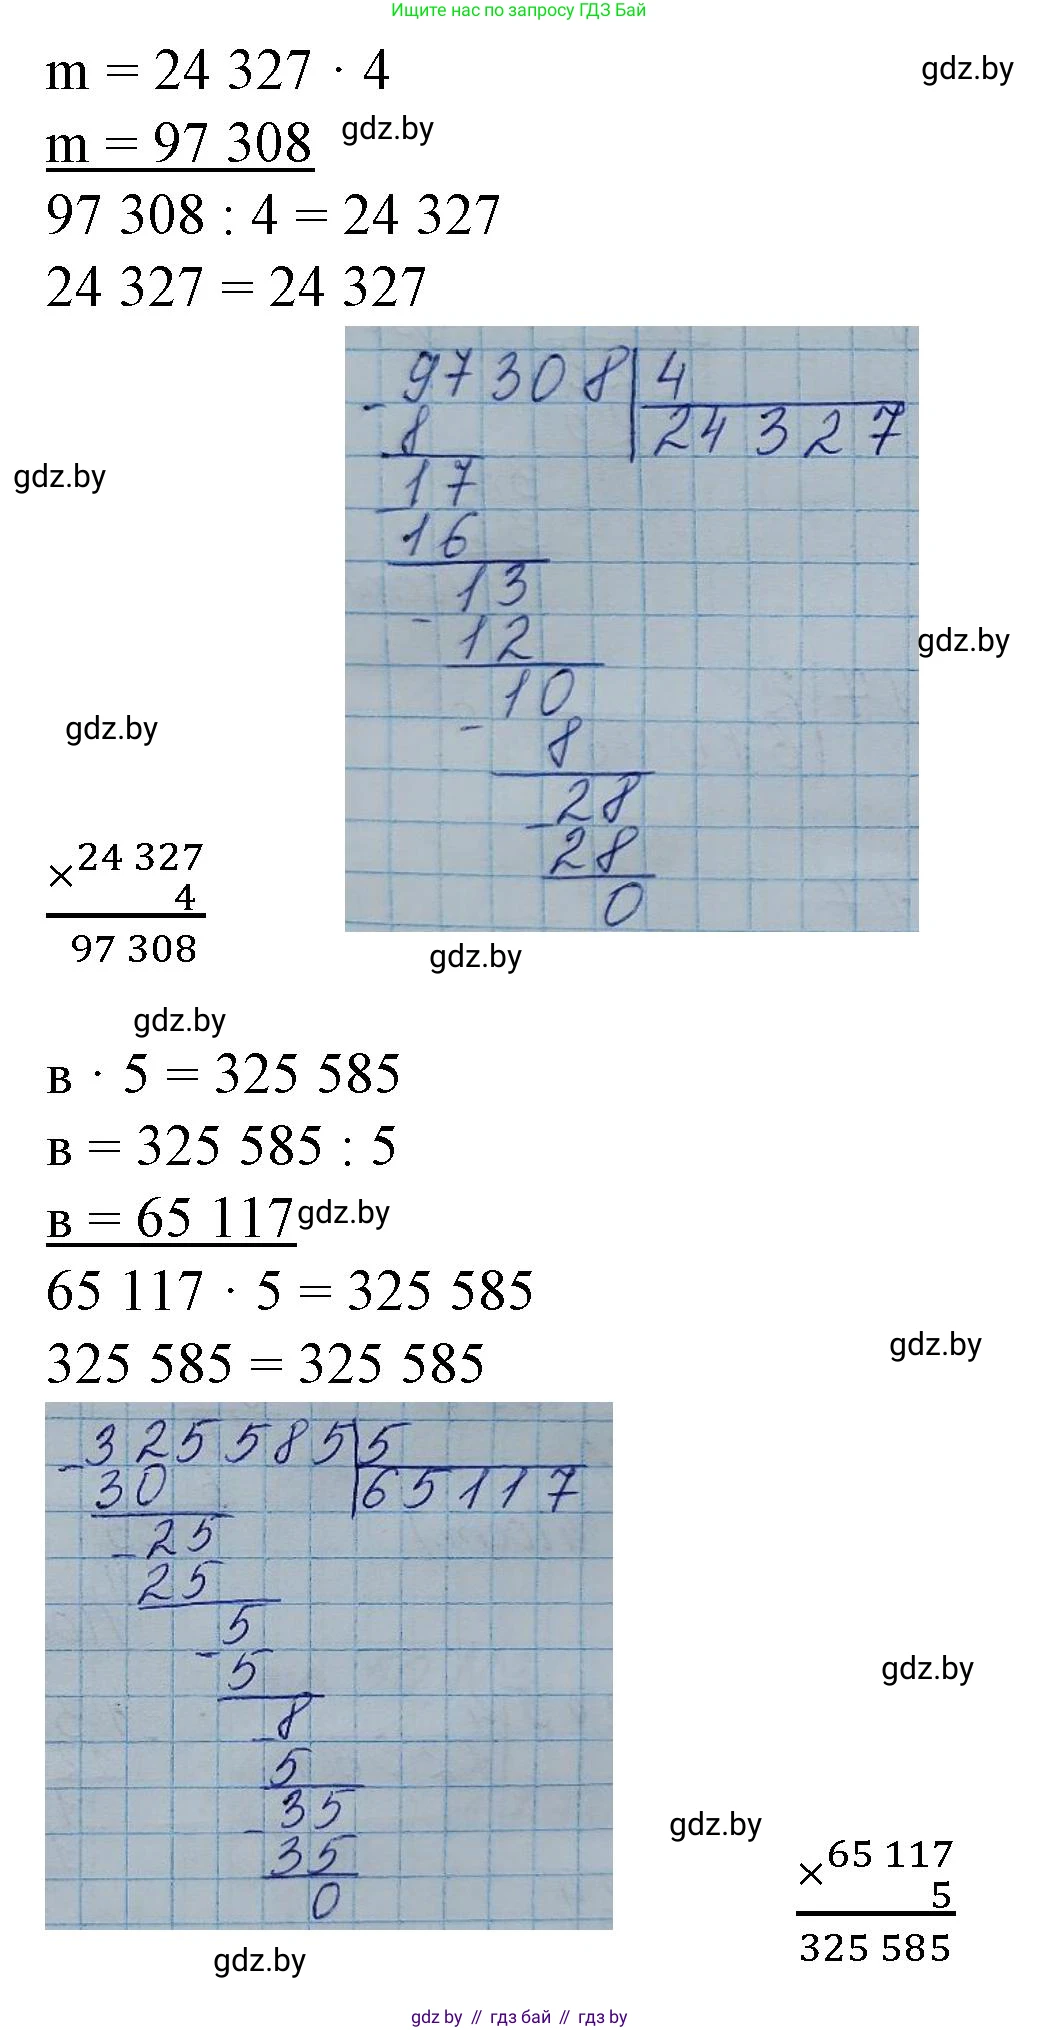 Ищите нас по запросу ГДЗ Бай
m = 24 327 · 4
gdz.by
m = 97 308
gdz.by
97 308 : 4 = 24 327
24 327 = 24 327
- 97308 | 4
8
24327
gdz.by
- 17
16
- 13
12
gdz.by
- 10
8
gdz.by
- 28
28
0
× 24 327
4
97 308
gdz.by
gdz.by
в · 5 = 325 585
в = 325 585 : 5
в = 65 117
gdz.by
65 117 · 5 = 325 585
325 585 = 325 585
gdz.by
- 325585 | 5
30
65117
- 25
25
- 5
5
gdz.by
- 8
5
- 35
35
0
gdz.by
× 65 117
5
325 585
gdz.by
gdz by // гдз бай // гдз by